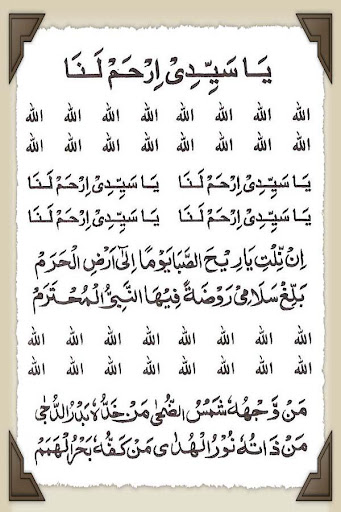 يَا سَيِّدِىْ اِرْحَمْ لَنَا
الله الله الله الله الله الله الله الله
الله الله الله الله الله الله الله الله
يَا سَيِّدِىْ اِرْحَمْ لَنَا يَا سَيِّدِىْ اِرْحَمْ لَنَا
يَا سَيِّدِىْ اِرْحَمْ لَنَا يَا سَيِّدِىْ اِرْحَمْ لَنَا
اِنْ نِلْتِ يَا رِيْحَ الصَّبَا يَوْمًا اِلَى اَرْضِ الْحَرَمْ
بَلِّغْ سَلَامِىْ رَوْضَةً فِيْهَا النَّبِيُّ الْمُحْتَرَمْ
الله الله الله الله الله الله الله الله
الله الله الله الله الله الله الله الله
مَنْ وَجْهُهٗ شَمْسُ الضُّحٰى مَنْ خَدُّهٗ بَدْرُ الدُّجٰى
مَنْ ذَاتُهٗ نُوْرُ الْهُدٰى مَنْ كَفُّهٗ بَحْرُ الْهِمَمْ